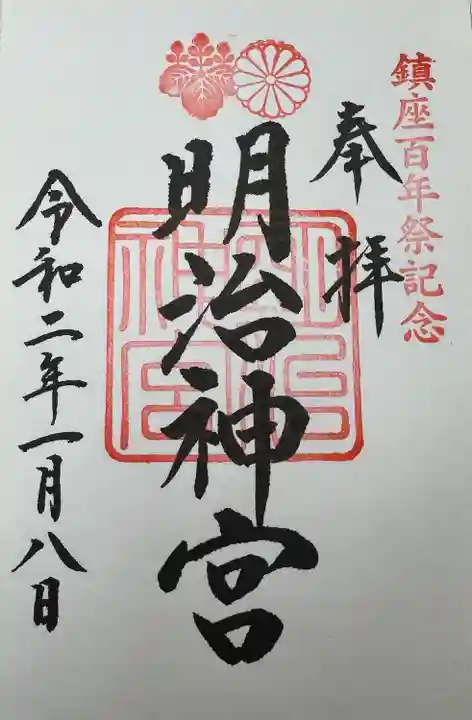 鎮座百年祭記念
奉拝
明治神宮
明治神宮
令和二年一月八日